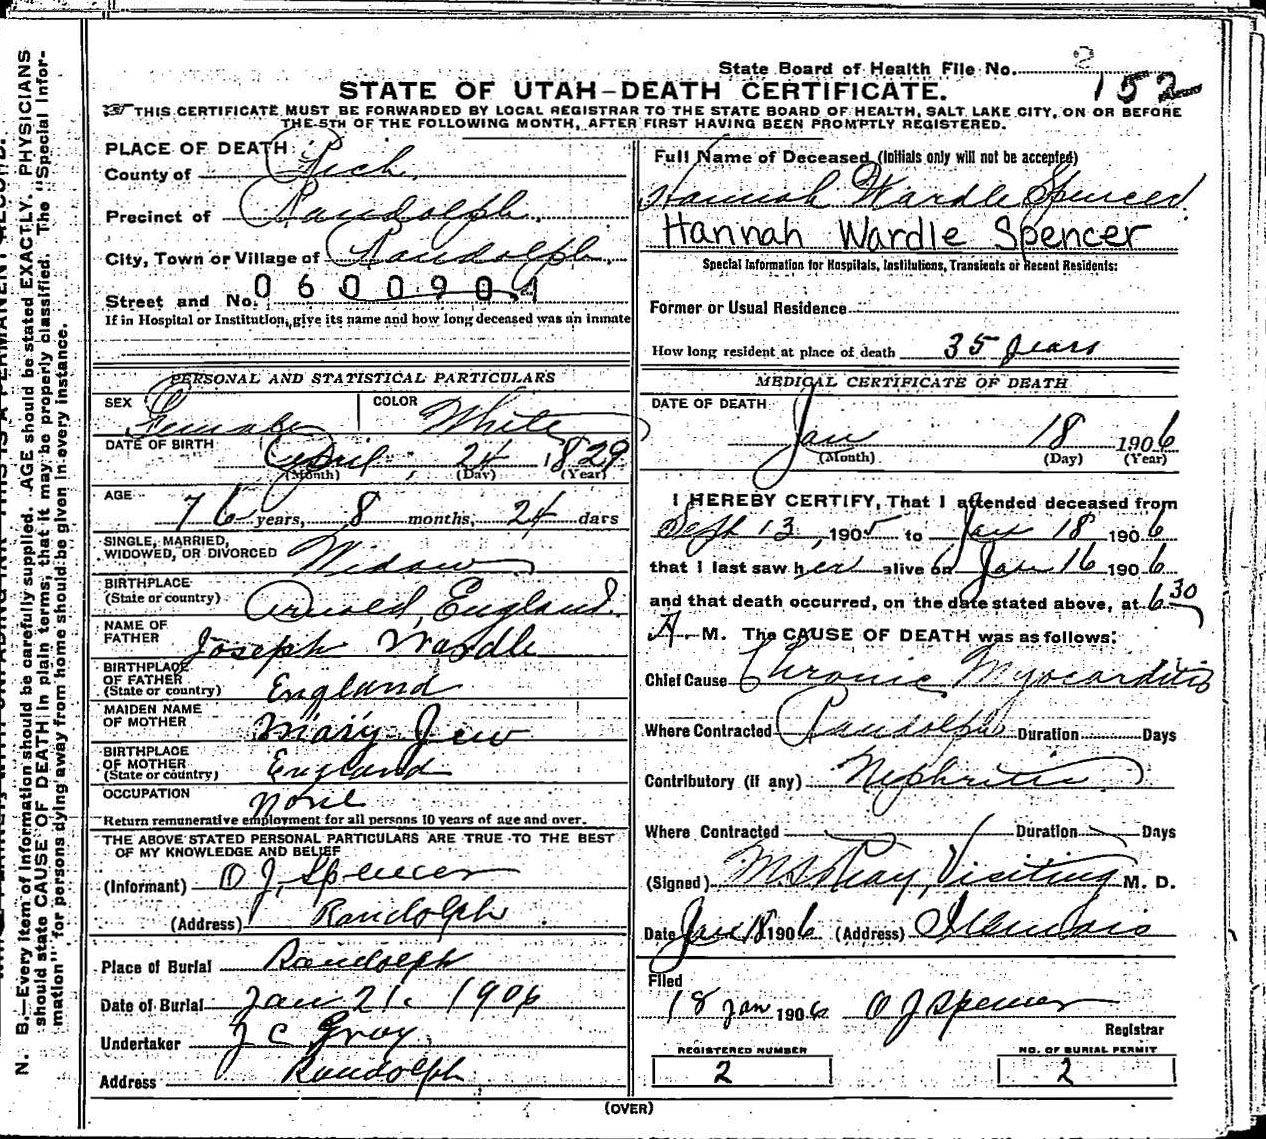 State Board of Health File No. 2
152
STATE OF UTAH-DEATH CERTIFICATE.
THIS CERTIFICATE MUST BE FORWARDED BY LOCAL REGISTRAR TO THE STATE BOARD OF HEALTH, SALT LAKE CITY, ON OR BEFORE
THE 5TH OF THE FOLLOWING MONTH, AFTER FIRST HAVING BEEN PROMPTLY REGISTERED.
PLACE OF DEATH
County of Rich
Precinct of Randolph
City, Town or Village of Randolph
Street and No. 0600904
If in Hospital or Institution, give its name and how long deceased was an inmate
PERSONAL AND STATISTICAL PARTICULARS
SEX Female COLOR White
DATE OF BIRTH
April 24 1829
(Month) (Day) (Year)
AGE
76 years, 8 months, 24 days
SINGLE, MARRIED,
WIDOWED, OR DIVORCED Widow
BIRTHPLACE
(State or country) Arnold, England
NAME OF
FATHER Joseph Wardle
BIRTHPLACE
OF FATHER
(State or country) England
MAIDEN NAME
OF MOTHER Mary Jew
BIRTHPLACE
OF MOTHER
(State or country) England
OCCUPATION None
Return remunerative employment for all persons 10 years of age and over.
THE ABOVE STATED PERSONAL PARTICULARS ARE TRUE TO THE BEST
OF MY KNOWLEDGE AND BELIEF
(Informant) O J, Spencer
(Address) Randolph
Place of Burial Randolph
Date of Burial Jan 21. 1906
Undertaker J C Gray
Address Randolph
Full Name of Deceased (Initials only will not be accepted)
Hannah Wardle Spencer
Hannah Wardle Spencer
Special Information for Hospitals, Institutions, Transients or Recent Residents:
Former or Usual Residence
How long resident at place of death 35 years
MEDICAL CERTIFICATE OF DEATH
DATE OF DEATH
Jan 18 1906
(Month) (Day) (Year)
I HEREBY CERTIFY, That I attended deceased from
Sept 13, 1905 to Jan 18 1906
that I last saw her alive on Jan 16 1906
and that death occurred, on the date stated above, at 6 30
A. M. The CAUSE OF DEATH was as follows:
Chief Cause Chronic Myocarditis
Where Contracted Randolph Duration Days
Contributory (if any) Nephritis
Where Contracted Duration Days
(Signed) Visiting M. D.
Date Jan 18 1906 (Address)
Filed
18 Jan 1906 O J Spencer
Registrar
REGISTERED NUMBER
2
NO. OF BURIAL PERMIT
2
(OVER)
N. B.—Every item of information should be carefully supplied. AGE should be stated EXACTLY. PHYSICIANS
should state CAUSE OF DEATH in plain terms, that it may be properly classified. The "Special Infor-
mation" for persons dying away from home should be given in every instance.